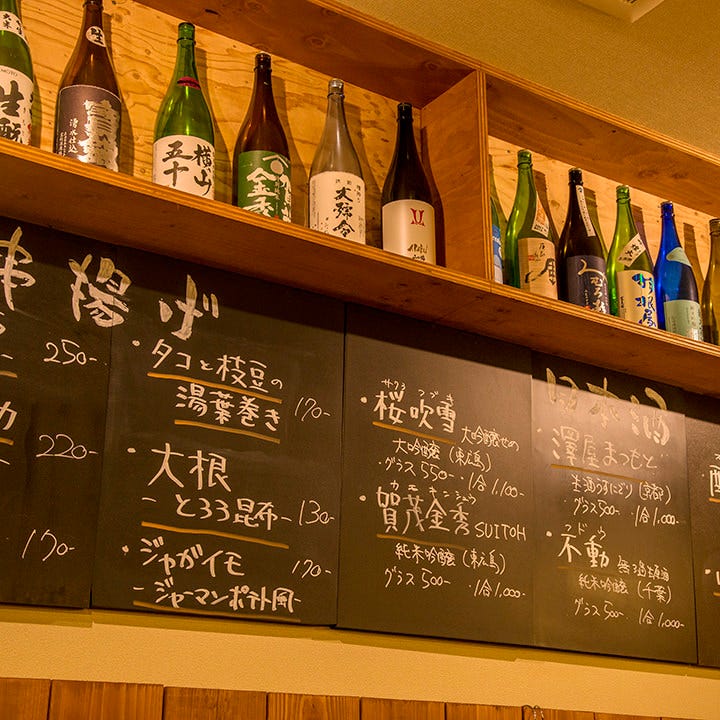 生酛
横山
五十
金秀
串揚げ
250-
220-
170-
・タコと枝豆の
湯葉巻き 170-
・大根
-とろろ昆布- 130-
・ジャガイモ 170-
-ジャーマンポテト風-
・桜吹雪 大吟醸せめ
大吟醸(東広島)
・グラス550- ・1合1,100-
・賀茂金秀 SUITOH
純米吟醸(東広島)
グラス500- ・1合1,000-
日本酒
・澤屋まつもと
生酒うすにごり(京都)
グラス500- ・1合1,000-
・不動 無ろ過生原酒
純米吟醸(千葉)
グラス500- ・1合1,000-